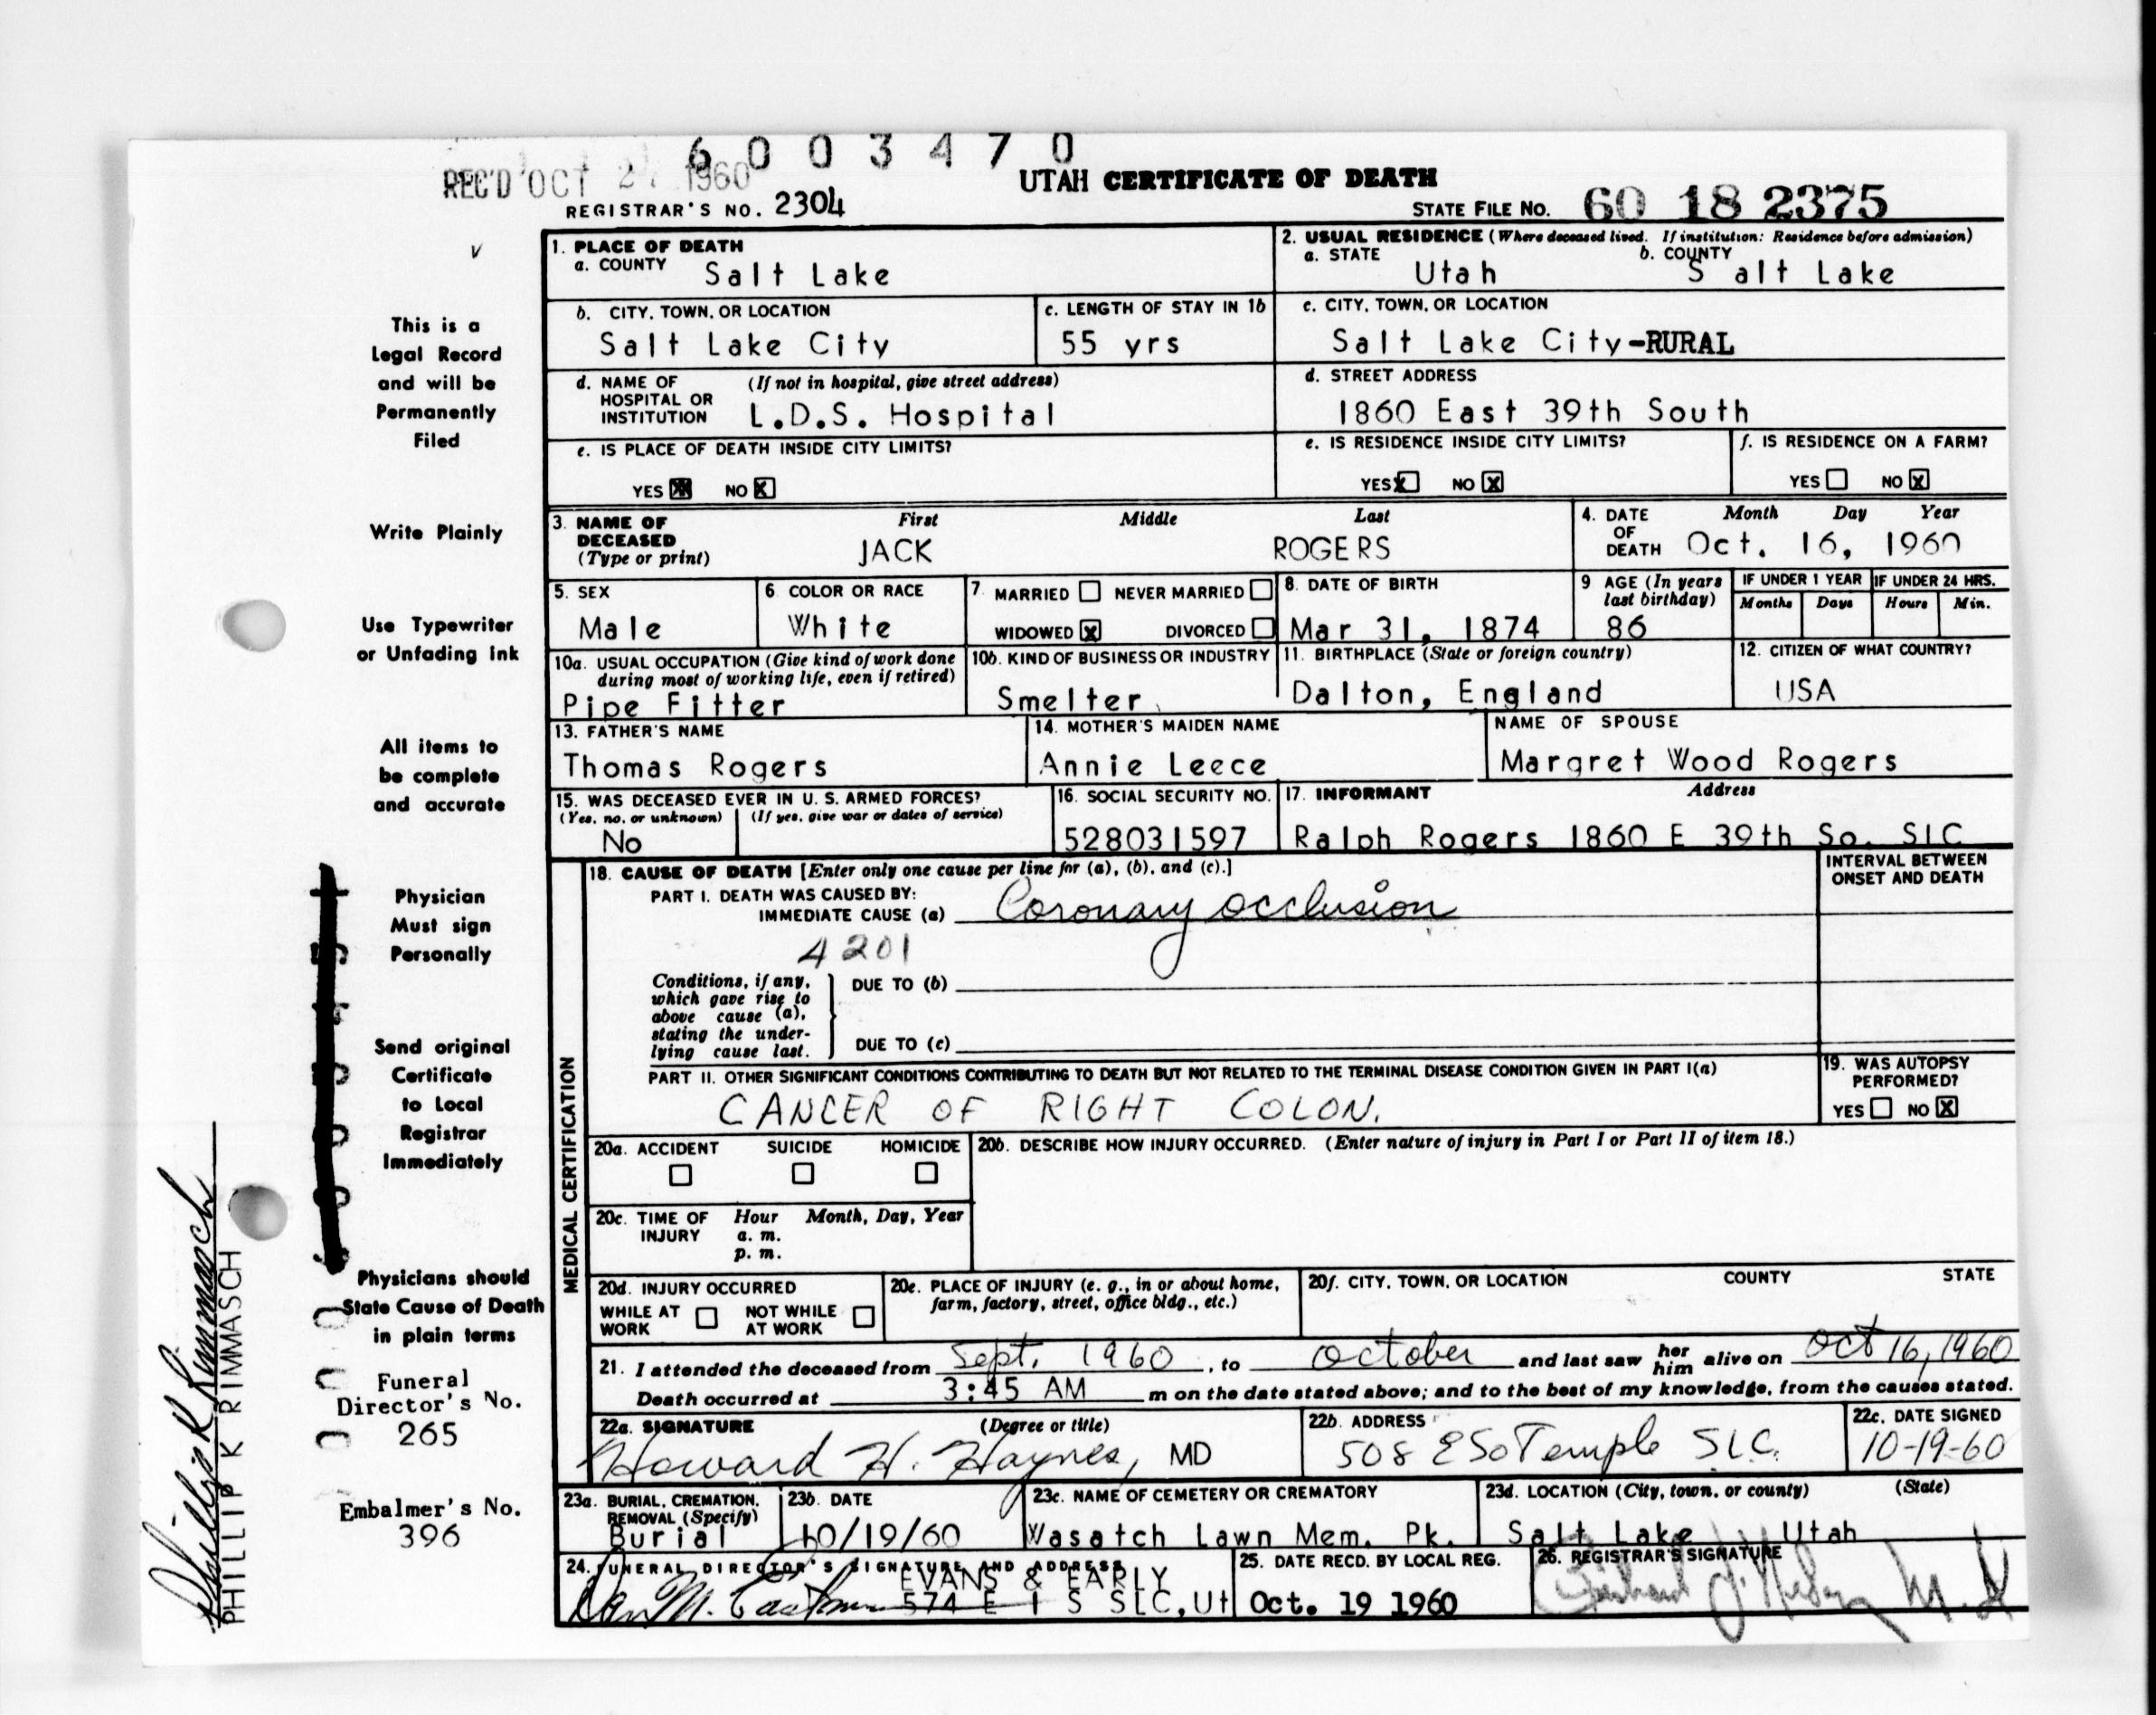 6003470
REC'D OCT 2 1960
UTAH CERTIFICATE OF DEATH
REGISTRAR'S NO. 2304
STATE FILE NO. 60 18 2375
This is a
Legal Record
and will be
Permanently
Filed
Write Plainly
Use Typewriter
or Unfading Ink
All items to
be complete
and accurate
Physician
Must sign
Personally
Send original
Certificate
to Local
Registrar
Immediately
Physicians should
State Cause of Death
in plain terms
Funeral
Director's No.
265
Embalmer's No.
396
Phillip K Rimmasch
PHILLIP K RIMMASCH
1. PLACE OF DEATH
a. COUNTY Salt Lake
2. USUAL RESIDENCE (Where deceased lived. If institution: Residence before admission)
a. STATE Utah b. COUNTY S alt Lake
b. CITY, TOWN, OR LOCATION
Salt Lake City
c. LENGTH OF STAY IN 1b
55 yrs
c. CITY, TOWN, OR LOCATION
Salt Lake City-RURAL
d. NAME OF HOSPITAL OR INSTITUTION (If not in hospital, give street address)
L.D.S. Hospital
d. STREET ADDRESS
1860 East 39th South
e. IS PLACE OF DEATH INSIDE CITY LIMITS?
YES X NO X
e. IS RESIDENCE INSIDE CITY LIMITS?
YES X NO X
f. IS RESIDENCE ON A FARM?
YES NO X
3. NAME OF DECEASED (Type or print) First Middle Last
JACK ROGERS
4. DATE OF DEATH Month Day Year
Oct. 16, 1960
5. SEX
Male
6. COLOR OR RACE
White
7. MARRIED NEVER MARRIED
WIDOWED X DIVORCED
8. DATE OF BIRTH
Mar 31, 1874
9 AGE (In years last birthday)
86
IF UNDER 1 YEAR IF UNDER 24 HRS.
Months Days Hours Min.
10a. USUAL OCCUPATION (Give kind of work done during most of working life, even if retired)
Pipe Fitter
10b. KIND OF BUSINESS OR INDUSTRY
Smelter
11. BIRTHPLACE (State or foreign country)
Dalton, England
12. CITIZEN OF WHAT COUNTRY?
USA
13. FATHER'S NAME
Thomas Rogers
14. MOTHER'S MAIDEN NAME
Annie Leece
NAME OF SPOUSE
Margret Wood Rogers
15. WAS DECEASED EVER IN U. S. ARMED FORCES?
(Yes, no, or unknown) (If yes, give war or dates of service)
No
16. SOCIAL SECURITY NO.
528031597
17. INFORMANT Address
Ralph Rogers 1860 E 39th So. SLC
MEDICAL CERTIFICATION
18. CAUSE OF DEATH [Enter only one cause per line for (a), (b), and (c).]
INTERVAL BETWEEN ONSET AND DEATH
PART I. DEATH WAS CAUSED BY:
IMMEDIATE CAUSE (a) Coronary occlusion
4201
Conditions, if any, which gave rise to above cause (a), stating the under- lying cause last.
DUE TO (b)
DUE TO (c)
PART II. OTHER SIGNIFICANT CONDITIONS CONTRIBUTING TO DEATH BUT NOT RELATED TO THE TERMINAL DISEASE CONDITION GIVEN IN PART I(a)
CANCER OF RIGHT COLON.
19. WAS AUTOPSY PERFORMED?
YES NO X
20a. ACCIDENT SUICIDE HOMICIDE
20b. DESCRIBE HOW INJURY OCCURRED. (Enter nature of injury in Part I or Part II of item 18.)
20c. TIME OF INJURY Hour Month, Day, Year
a. m.
p. m.
20d. INJURY OCCURRED
WHILE AT WORK NOT WHILE AT WORK
20e. PLACE OF INJURY (e. g., in or about home, farm, factory, street, office bldg., etc.)
20f. CITY, TOWN, OR LOCATION COUNTY STATE
21. I attended the deceased from Sept. 1960, to October and last saw her him alive on Oct 16, 1960
Death occurred at 3:45 AM m on the date stated above; and to the best of my knowledge, from the causes stated.
22a. SIGNATURE (Degree or title)
Howard H. Haynes, MD
22b. ADDRESS
508 E So Temple SLC.
22c. DATE SIGNED
10-19-60
23a. BURIAL, CREMATION, REMOVAL (Specify)
Burial
23b. DATE
10/19/60
23c. NAME OF CEMETERY OR CREMATORY
Wasatch Lawn Mem. Pk.
23d. LOCATION (City, town, or county) (State)
Salt Lake Utah
24. FUNERAL DIRECTOR'S SIGNATURE AND ADDRESS
EVANS & EARLY
574 E 1 S SLC, Ut
25. DATE RECD. BY LOCAL REG.
Oct. 19 1960
26. REGISTRAR'S SIGNATURE